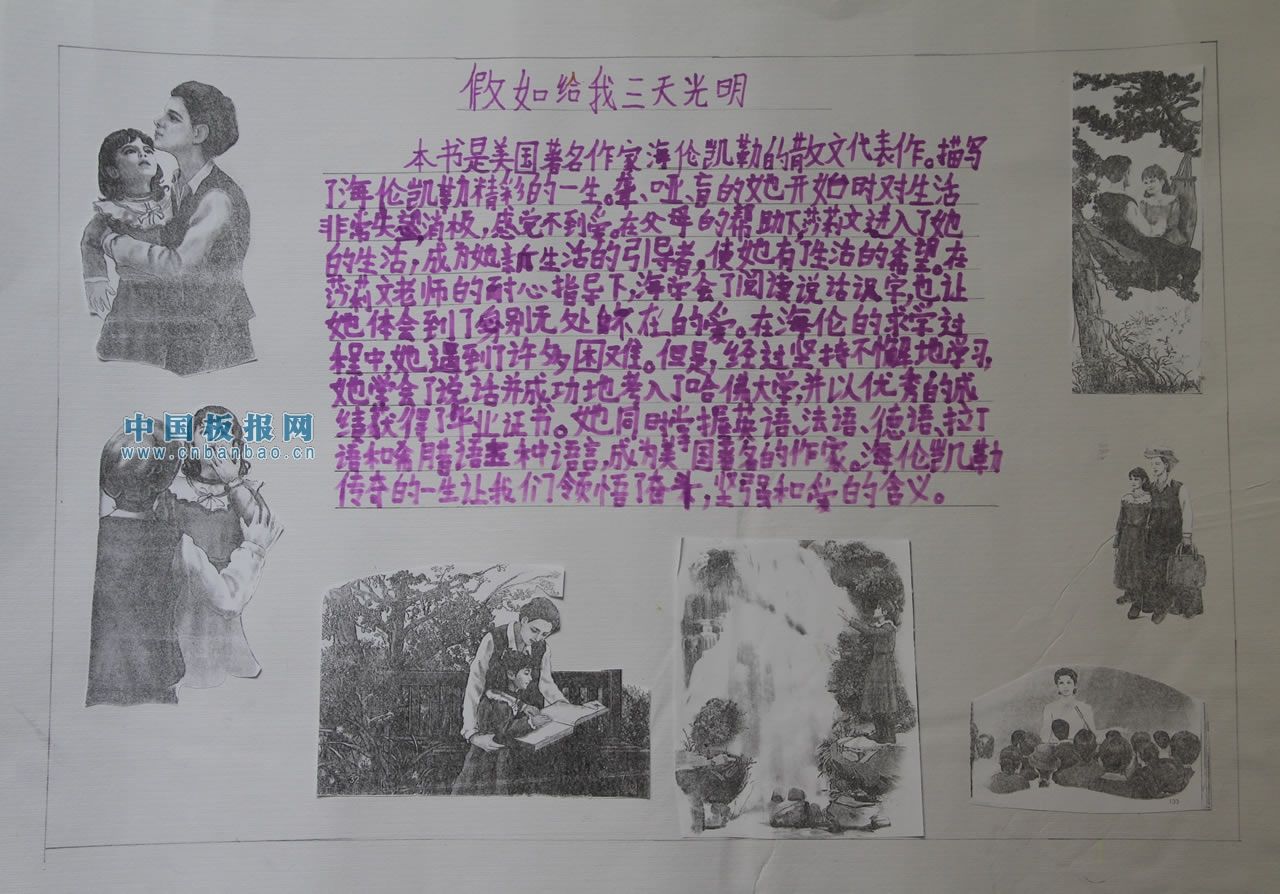 假如给我三天光明
本书是美国著名作家海伦凯勒的散文代表作。描写
了海伦凯勒精彩的一生。聋、哑、盲的她开始时对生活
非常失望消极,感觉不到爱。在父母的帮助下,莎莉文进入了她
的生活,成为她新生活的引导者,使她有了生活的希望。在
莎莉文老师的耐心指导下,海学会了阅读说话汉字,也让
她体会到了身别无处的不在的爱。在海伦的求学过
程中,她遇到了许多困难。但是,经过坚持不懈地学习,
她学会了说话并成功地考入了哈佛大学,并以优秀的成
绩获得了毕业证书。她同时掌握英语、法语、德语、拉丁
语和希腊语五种语言,成为美国著名的作家。海伦凯勒
传奇的一生让我们领悟了奋斗,坚强和爱的含义。
中国板报网
www.cnbanbao.cn
133